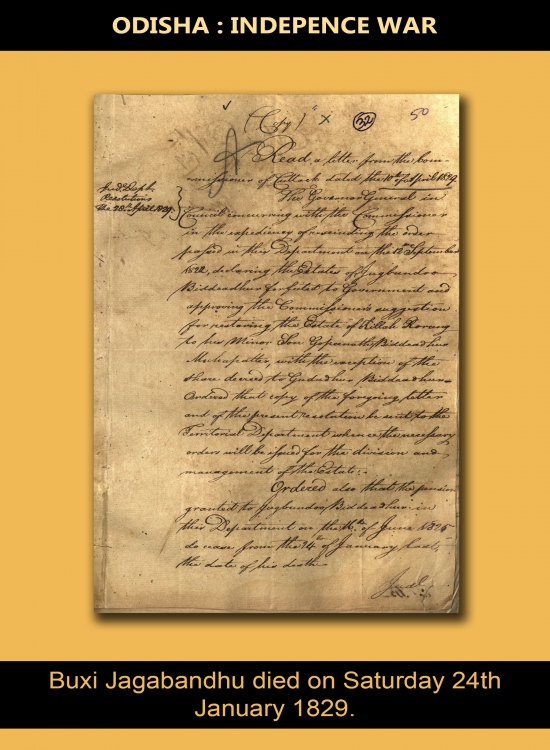 ODISHA : INDEPENCE WAR
(Copy) " x 32 50
Read a letter from the Com-
missioner of Cuttack dated the 10th April 1829.
Judl. Dept.
Resolutions
the 28th April 1829
The Governor General in
Council concurring with the Commissioner
in the expediency of rescinding the order
passed in this Department on the 12th September
1822, declaring the Estates of Jugbundoo
Biddeadhur forfeited to Government and
approving the Commissioner's suggestion
for restoring the Estate of Killah Rorung
to his Minor Son Gopenath Biddeadhur
Mahapatter, with the exception of the
share decreed to Gudadhur Biddeadhur =
Ordered that copy of the foregoing letter
and of the present resolution be sent to the
Territorial Department whence the necessary
orders will be issued for the division and
management of the Estate:-
Ordered also that the pension
granted to Jugbundoo Biddeadhur in
this Department on the 16th of June 1825
do cease from the 24th of January last
the date of his death
Judl.
Buxi Jagabandhu died on Saturday 24th
January 1829.